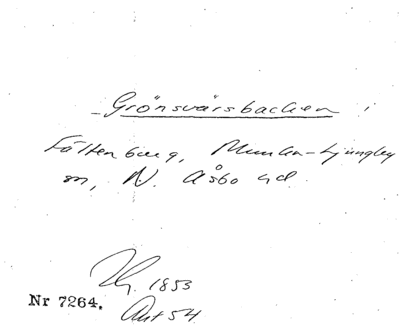 Grönsvärsbacken
Fältenborg, Munka-Ljungby
sn, N. Åsbo hd
Hg. 1853
Nr 7264.
Avt 54.